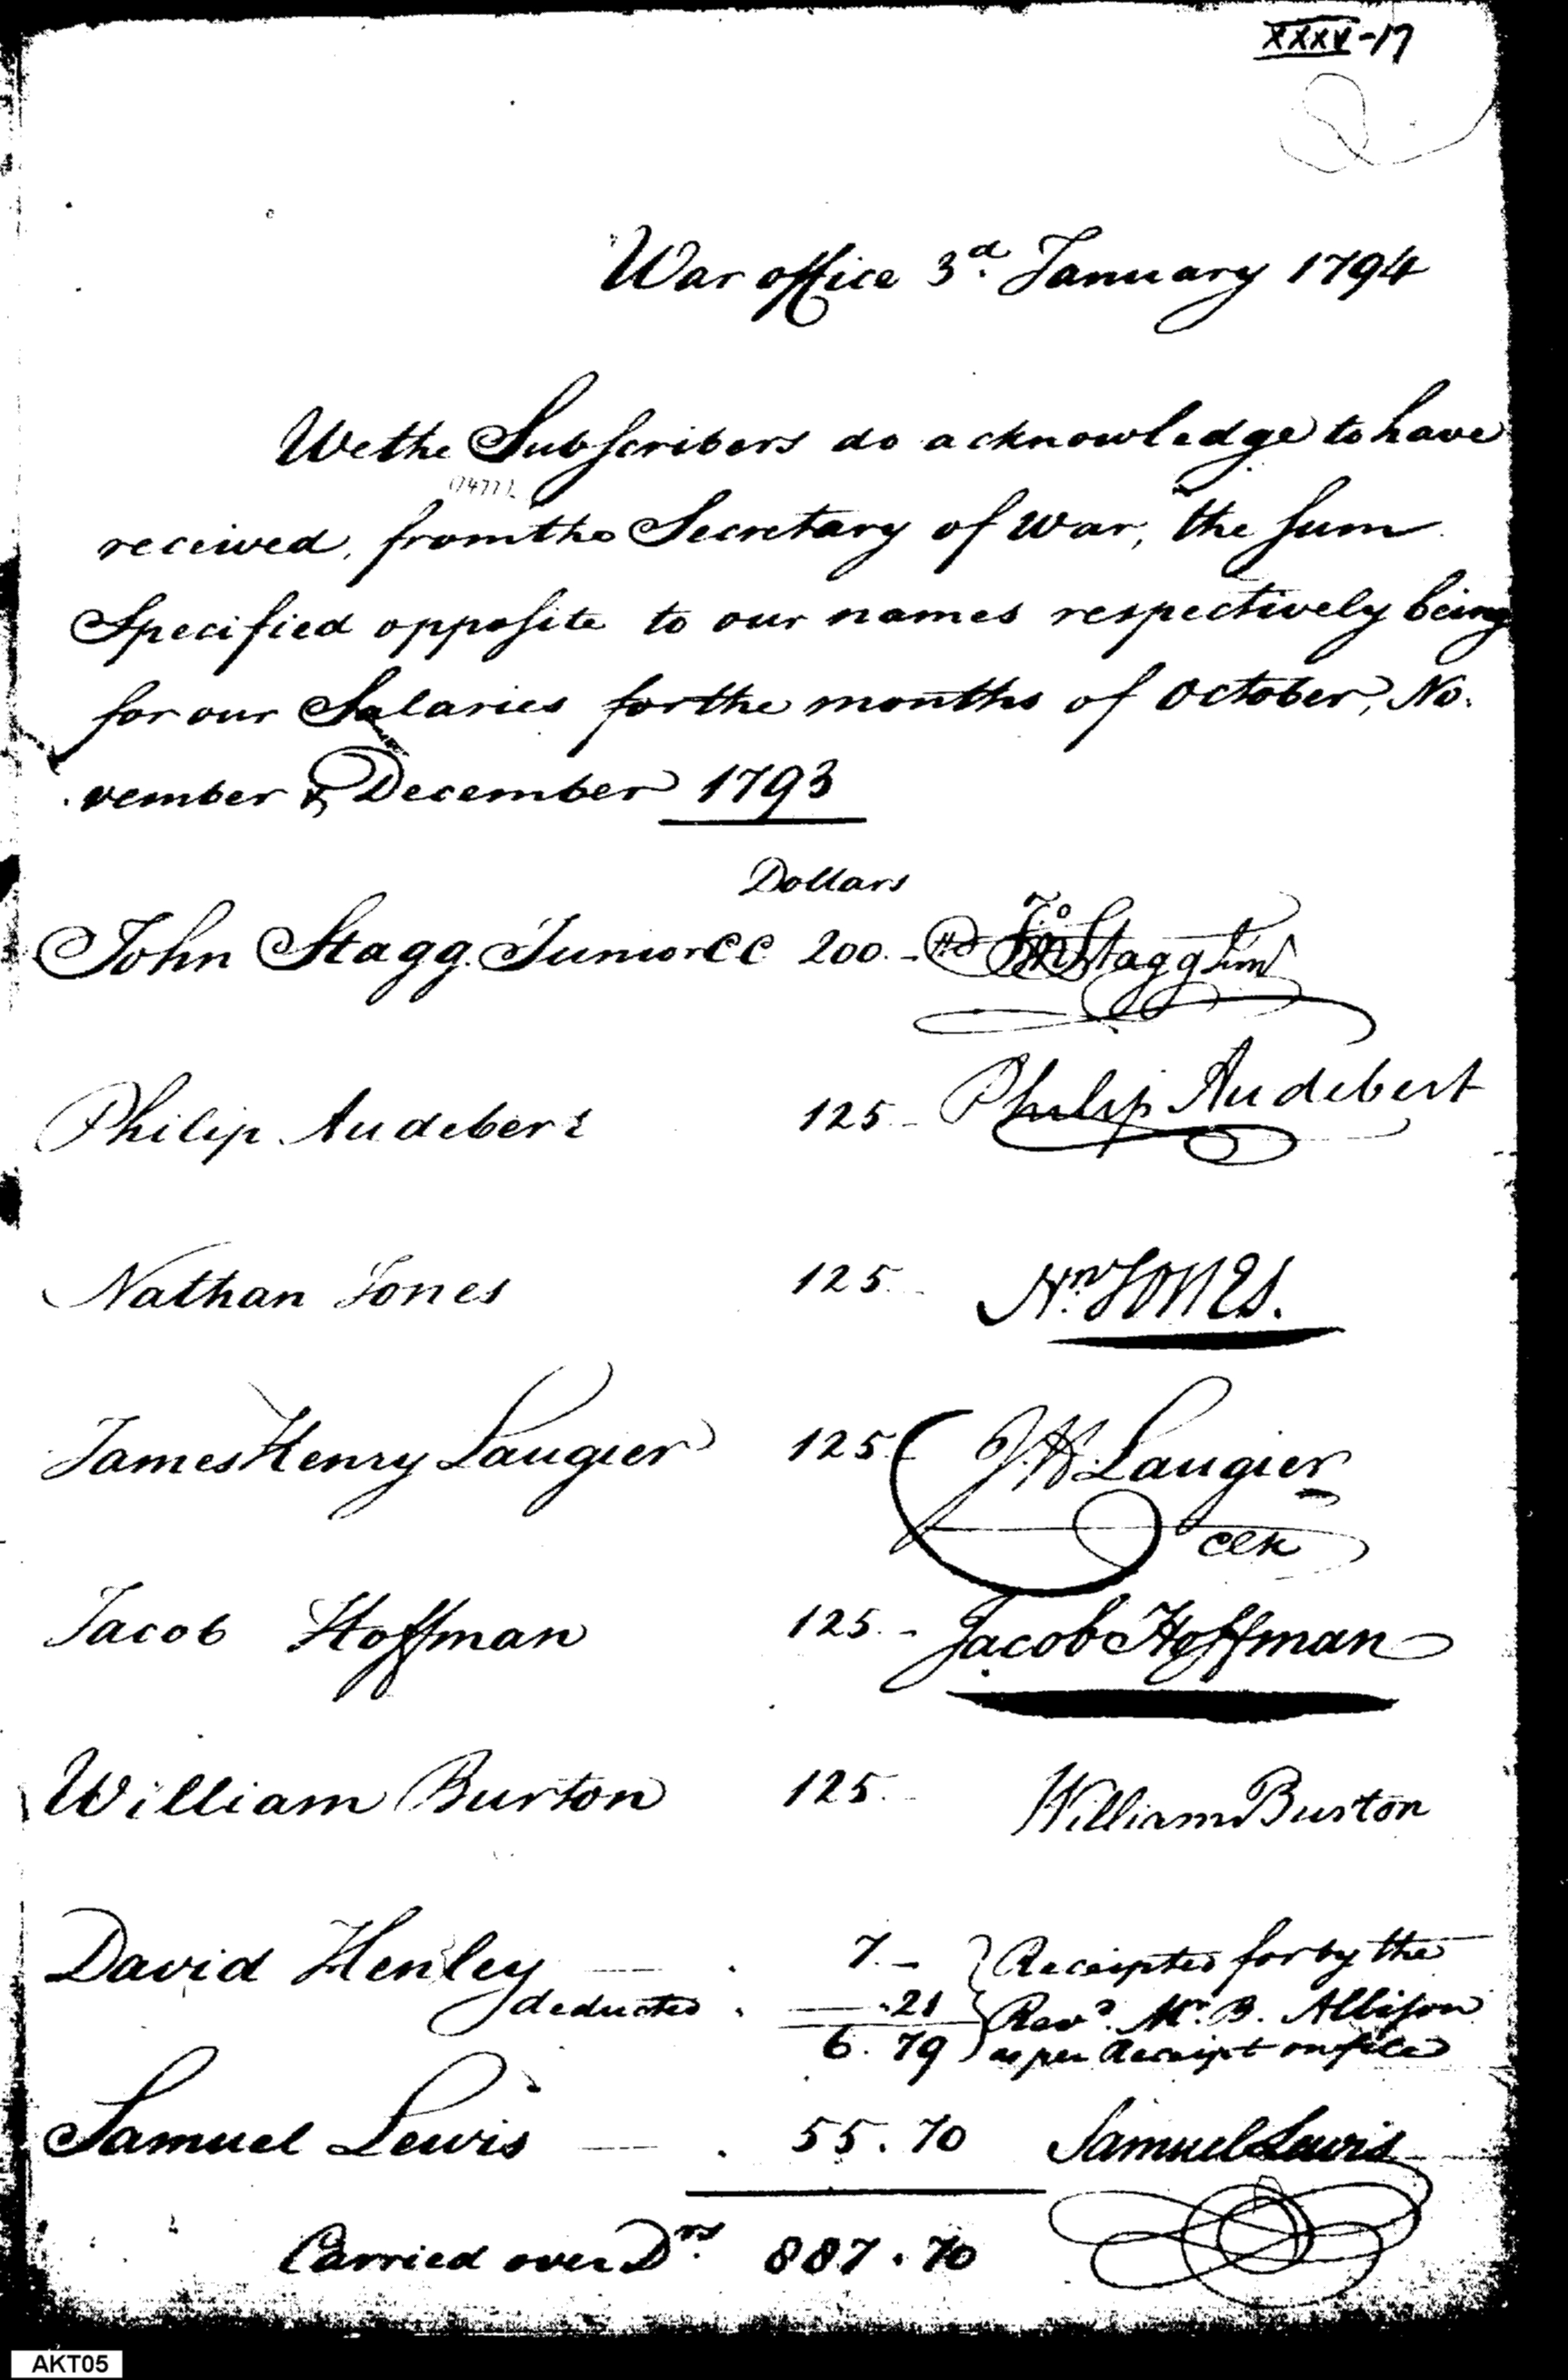 XXXV-17
War office 3d. January 1794
We the Subscribers do acknowledge to have
received, from the Secretary of War, the sum
Specified opposite to our names respectively being
for our Salaries for the months of October, No.
vember & December 1793
Dollars
John Stagg Junior CC 200.- Jno Stagg Junr
Philip Audebert 125- Philip Audebert
Nathan Jones 125.- Nn. Jones.
James Henry Laugier 125.- J. H. Laugier
Clk
Jacob Hoffman 125.- Jacob Hoffman
William Burton 125.- William Burton
David Henley 7.- Receipted for by the
deducted .21 Revd. Mr. B. Allison
6.79 as per Receipt on file
Samuel Lewis 55.70 Samuel Lewis
Carried over Drs. 887.70
AKT05